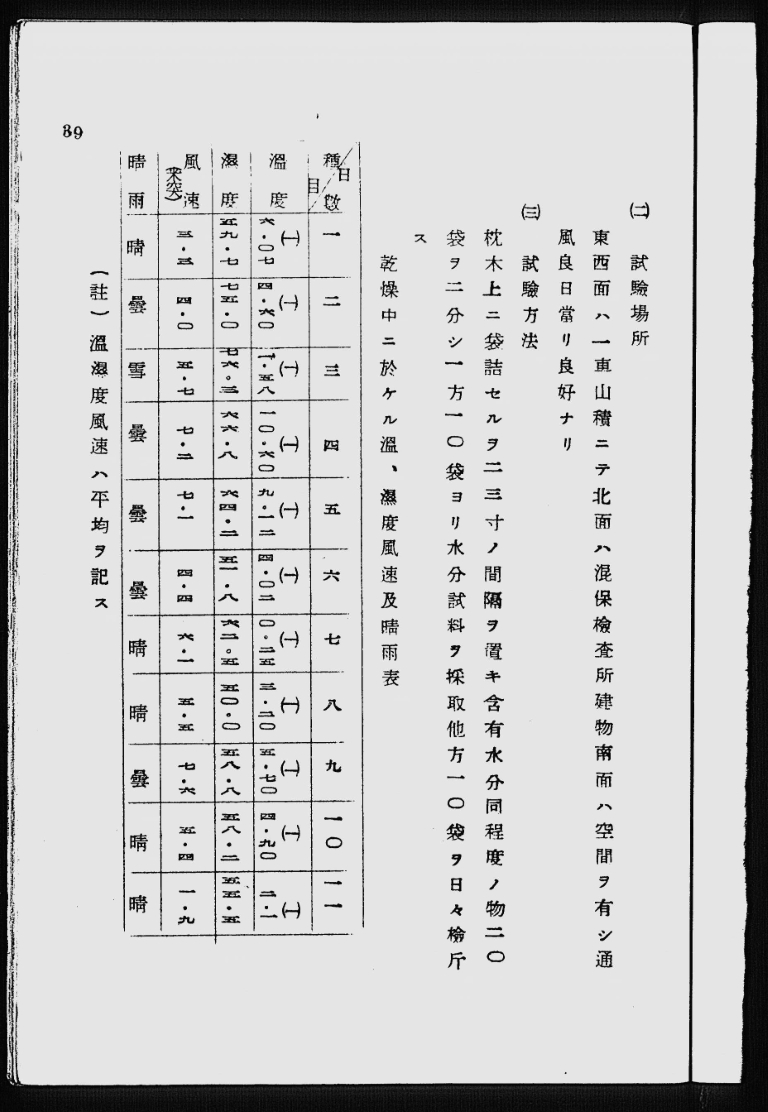 ㈡ 試驗場所
東西面ハ一車山積ニテ北面ハ混保檢査所建物南面ハ空間ヲ有シ通
風良日當リ良好ナリ
㈢ 試驗方法
枕木上ニ袋詰セルヲ二三寸ノ間隔ヲ置キ含有水分同程度ノ物二〇
袋ヲ二分シ一方一〇袋ヨリ水分試料ヲ採取他方一〇袋ヲ日々檢斤
ス
乾燥中ニ於ケル溫、濕度風速及晴雨表
種目 日數 一 二 三 四 五 六 七 八 九 一〇 一一
溫度 ㈠六・〇七 ㈠四・六〇 ㈠一・五八 ㈠一〇・六〇 ㈠九・一二 ㈠四・〇二 ㈠〇・二五 ㈠三・二〇 ㈠五・七〇 ㈠四・九〇 ㈠二・一
濕度 五九・七 七五・〇 七六。三 六六・八 六四・二 五一・八 六二。五 五〇・〇 五八・八 五八・二 五五・五
風速(米突) 三・三 四・〇 五・七 七・二 七・一 四・四 六・一 五・五 七・六 五・四 一・九
晴雨 晴 曇 雪 曇 曇 曇 晴 晴 曇 晴 晴
(註) 溫濕度風速ハ平均ヲ記ス
89